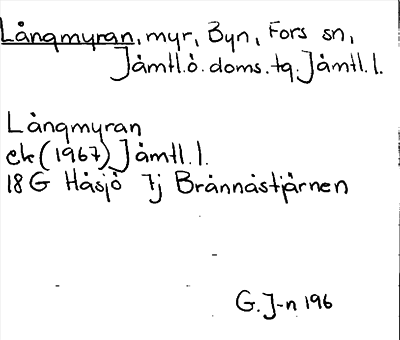 Långmyran, myr, Byn, Fors sn,
Jämtl.ö.doms.tg. Jämtl.l.
Långmyran
ek (1967) Jämtl.l.
18 G Håsjö 7j Brännåstjärnen
G. J-n 196